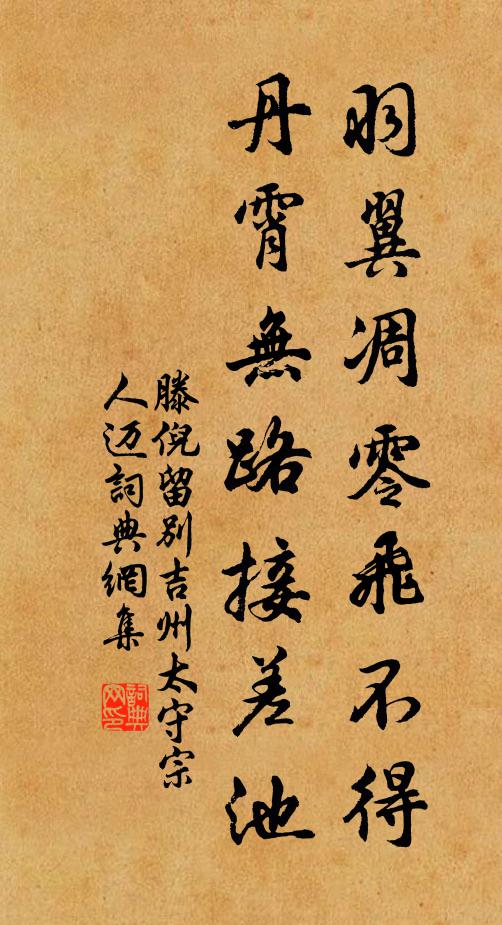 羽翼凋零飛不得
丹霄無路接差池
滕倪留別吉州太守宗
人迈詞典網集
詞典網印